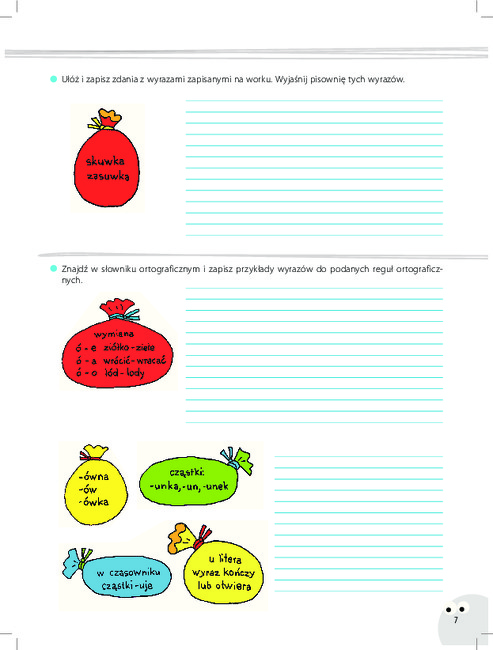 Ułóż i zapisz zdania z wyrazami zapisanymi na worku. Wyjaśnij pisownię tych wyrazów.
skuwka
zasuwka
Znajdź w słowniku ortograficznym i zapisz przykłady wyrazów do podanych reguł ortograficz-
nych.
wymiana
ó - e ziółko - ziele
ó - a wrócić - wracać
ó - o lód - lody
-ówna
-ów
-ówka
cząstki:
-unka, -un, -unek
w czasowniku
cząstki -uje
u litera
wyraz kończy
lub otwiera
7